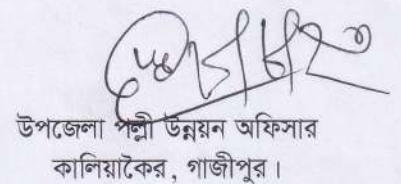 উপজেলা পল্লী উন্নয়ন অফিসার
কালিয়াকৈর, গাজীপুর।